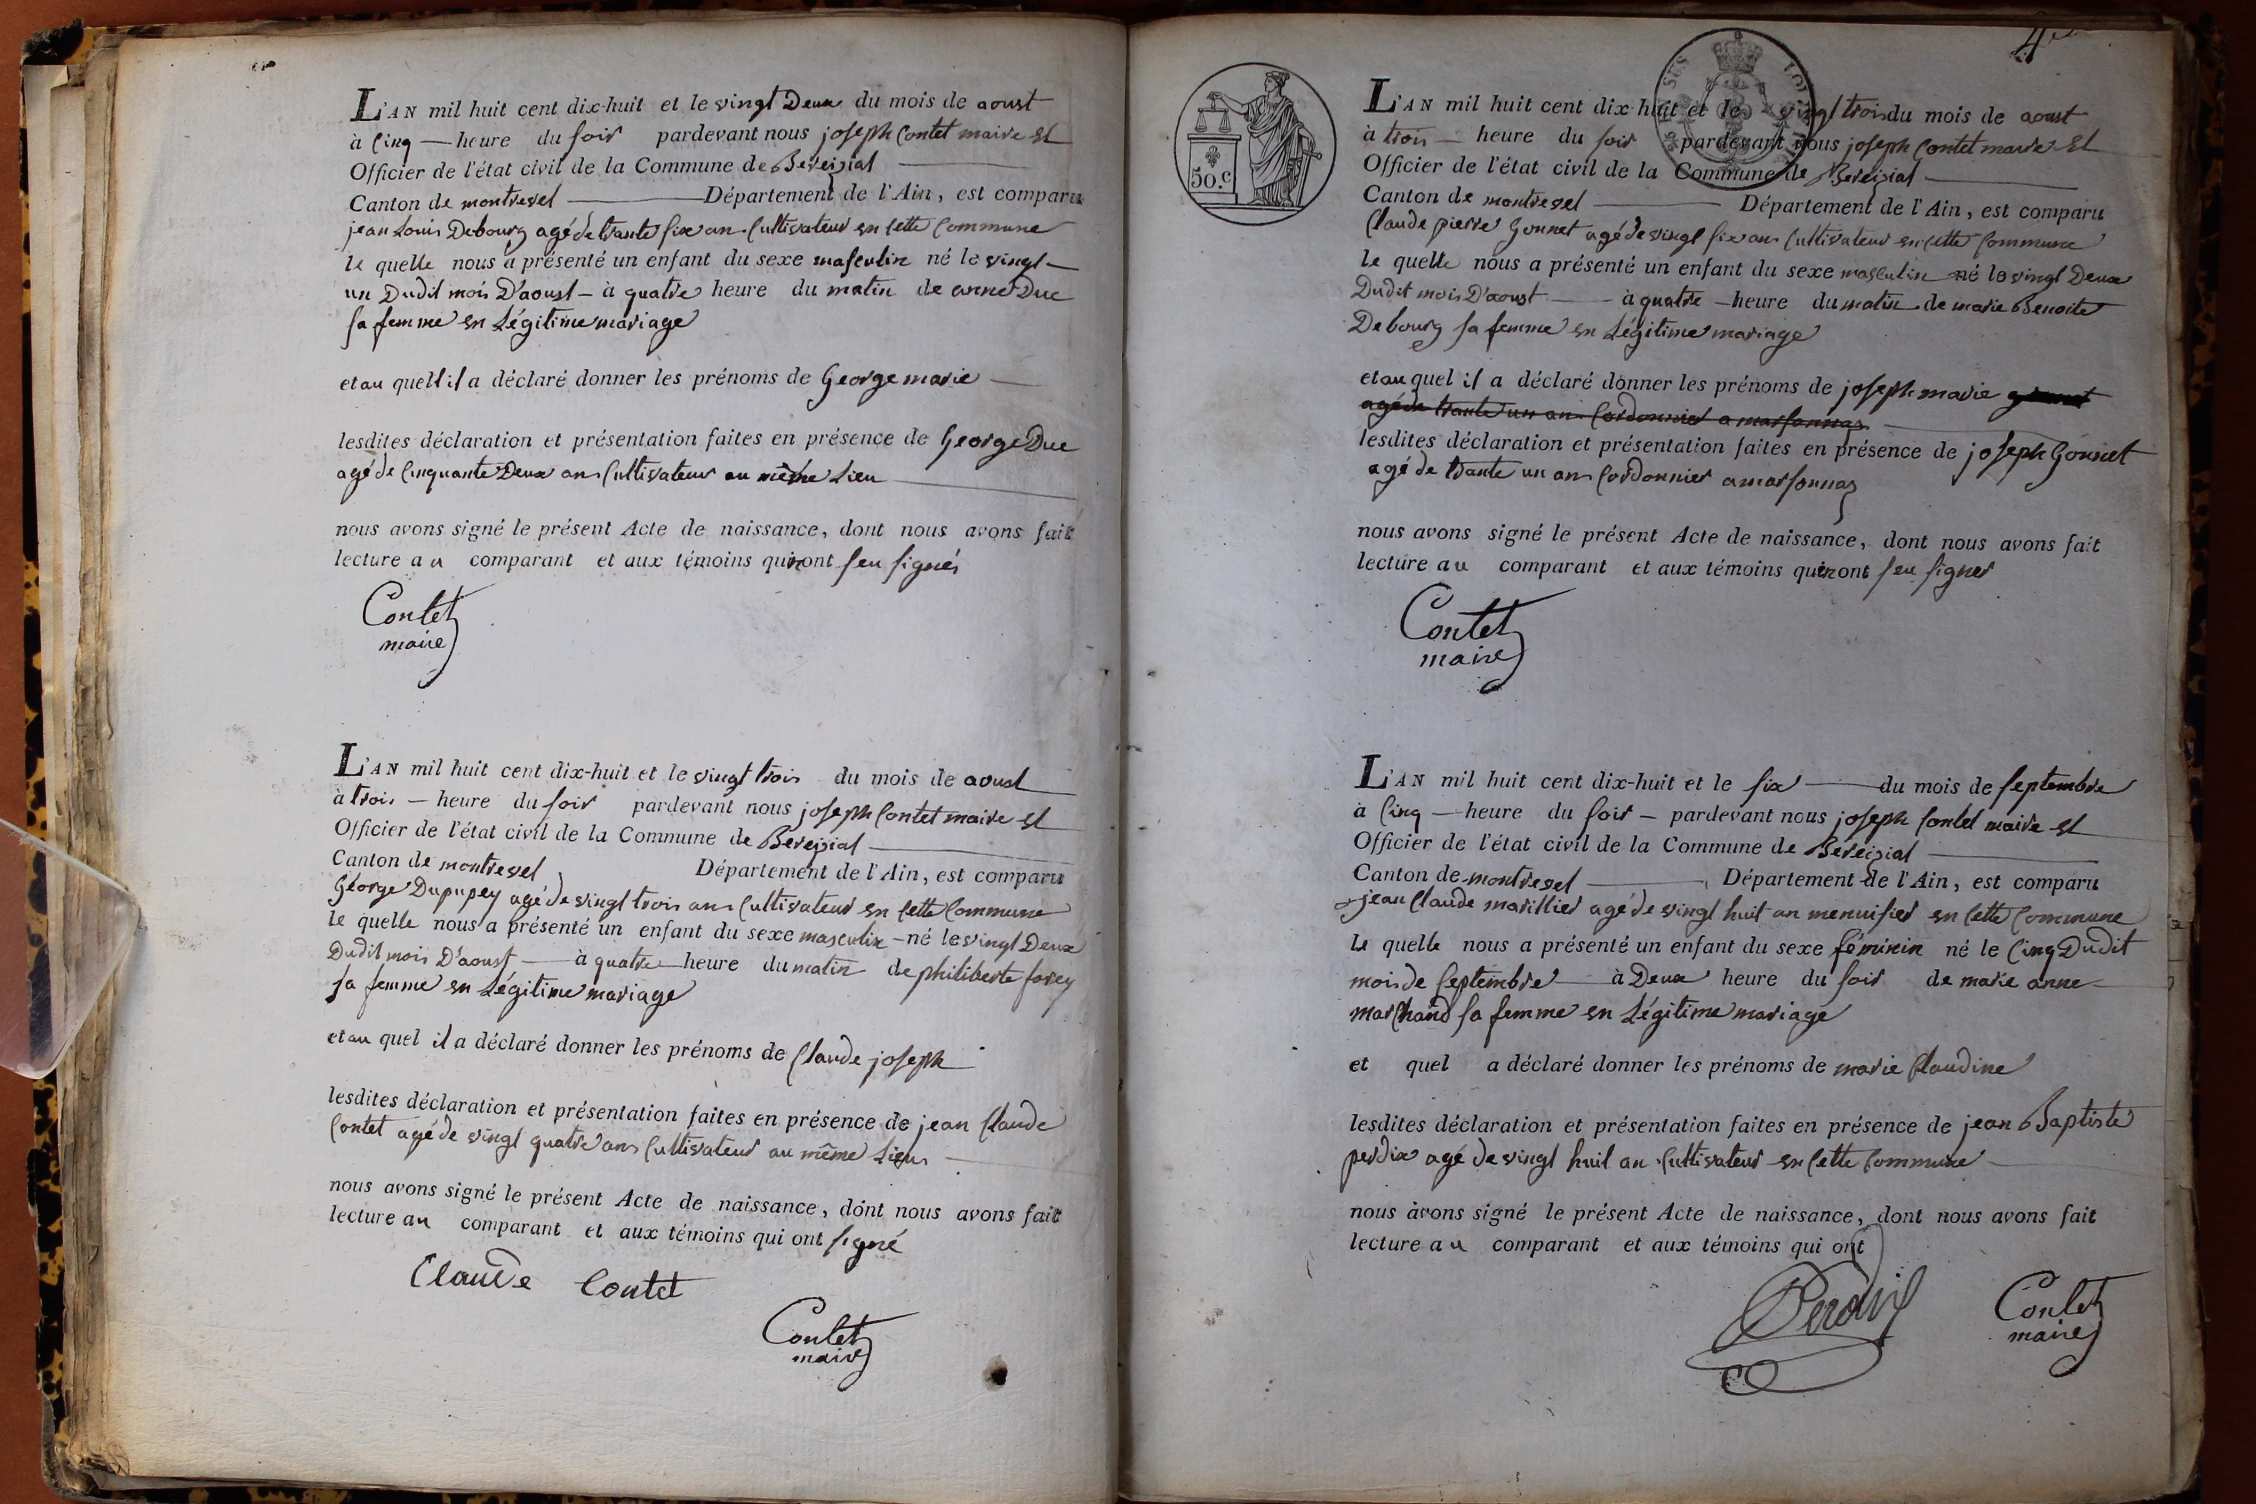 L'AN mil huit cent dix-huit et le vingt Deux du mois de aoust
à Cinq — heure du soir pardevant nous joseph Contet maire et
Officier de l'état civil de la Commune de Bereizial
Canton de montrevel Département de l'Ain, est comparu
jean Louis Debourg agé de trante six ans Cultivateur en cette Commune
le quelle nous a présenté un enfant du sexe masculin né le vingt
un Dudit mois D'aoust — à quatre heure du matin de anne Duc
sa femme en Légitime mariage
et au quell il a déclaré donner les prénoms de George marie
lesdites déclaration et présentation faites en présence de George Duc
agé de Cinquante Deux ans Cultivateur au même Lieu
nous avons signé le présent Acte de naissance, dont nous avons fait
lecture au comparant et aux témoins qui n'ont seu signés
Contet
maire
L'AN mil huit cent dix-huit et le vingt trois du mois de aoust
à trois — heure du soir pardevant nous joseph Contet maire et
Officier de l'état civil de la Commune de Bereizial
Canton de montrevel Département de l'Ain, est comparu
George Dupupey agé de vingt trois ans Cultivateur en Cette Commune
le quelle nous a présenté un enfant du sexe masculin — né le vingt Deux
Dudit mois D'aoust — à quatre heure du matin de philiberte forey
sa femme en Légitime mariage
et au quel il a déclaré donner les prénoms de Claude joseph
lesdites déclaration et présentation faites en présence de jean Claude
Contet agé de vingt quatre ans Cultivateur au même Lieu
nous avons signé le présent Acte de naissance, dont nous avons fait
lecture au comparant et aux témoins qui ont signé
Claude Contet
Contet
maire
4
50.c
L'AN mil huit cent dix-huit et le vingt trois du mois de aoust
à trois — heure du soir pardevant nous joseph Contet maire et
Officier de l'état civil de la Commune de Bereizial
Canton de montrevel Département de l'Ain, est comparu
Claude pierre Gonnet agé de vingt six ans Cultivateur en Cette Commune
le quelle nous a présenté un enfant du sexe masculin né le vingt Deux
Dudit mois D'aoust — à quatre — heure du matin de marie Benoite
Debourg sa femme en Légitime mariage
et au quel il a déclaré donner les prénoms de joseph marie
agé de trante un ans Cordonnier a marsonnas
lesdites déclaration et présentation faites en présence de joseph Gonnet
agé de trante un ans Cordonnier a marsonnas
nous avons signé le présent Acte de naissance, dont nous avons fait
lecture au comparant et aux témoins qui n'ont seu signer
Contet
maire
L'AN mil huit cent dix-huit et le six du mois de septembre
à Cinq — heure du soir — pardevant nous joseph Contet maire et
Officier de l'état civil de la Commune de Bereizial
Canton de montrevel Département de l'Ain, est comparu
jean Claude marillier agé de vingt huit an menuisier en Cette Commune
le quelle nous a présenté un enfant du sexe féminin né le Cinq Dudit
mois de septembre à Deux heure du soir de marie anne
marchand sa femme en Légitime mariage
et quel a déclaré donner les prénoms de marie Claudine
lesdites déclaration et présentation faites en présence de jean Baptiste
perdix agé de vingt huit an Cultivateur en Cette Commune
nous avons signé le présent Acte de naissance, dont nous avons fait
lecture au comparant et aux témoins qui ont
Perdix
Contet
maire